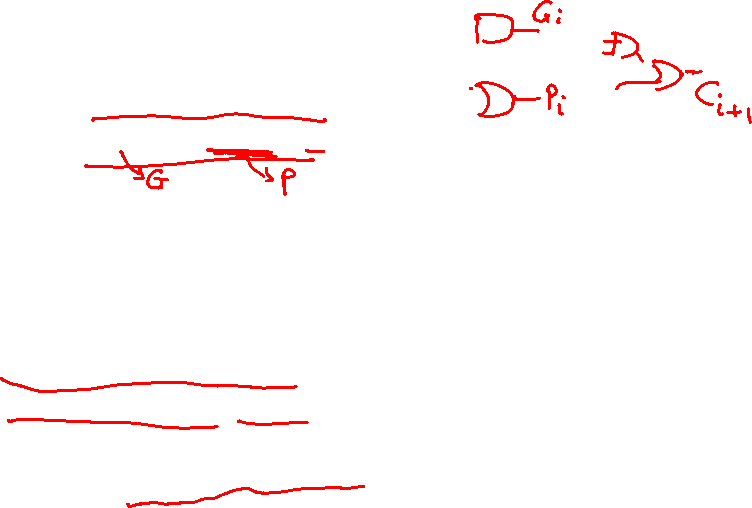 Gi
Pi
Ci+1
G
P